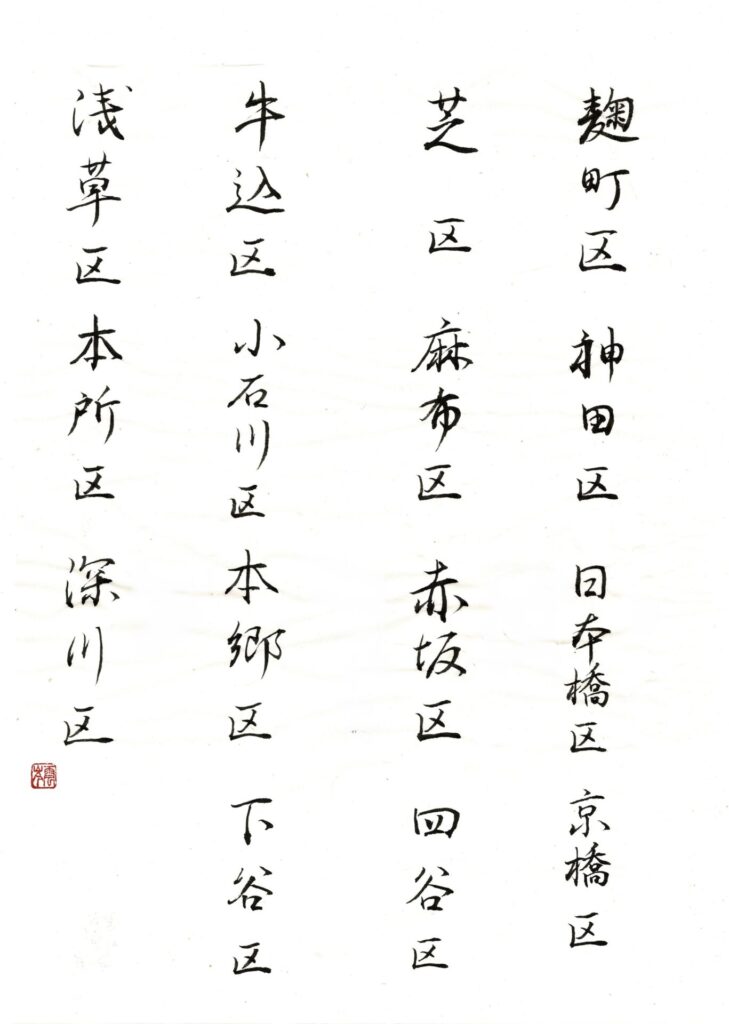 麹町区 神田区 日本橋区 京橋区
芝区 麻布区 赤坂区 四谷区
牛込区 小石川区 本郷区 下谷区
浅草区 本所区 深川区